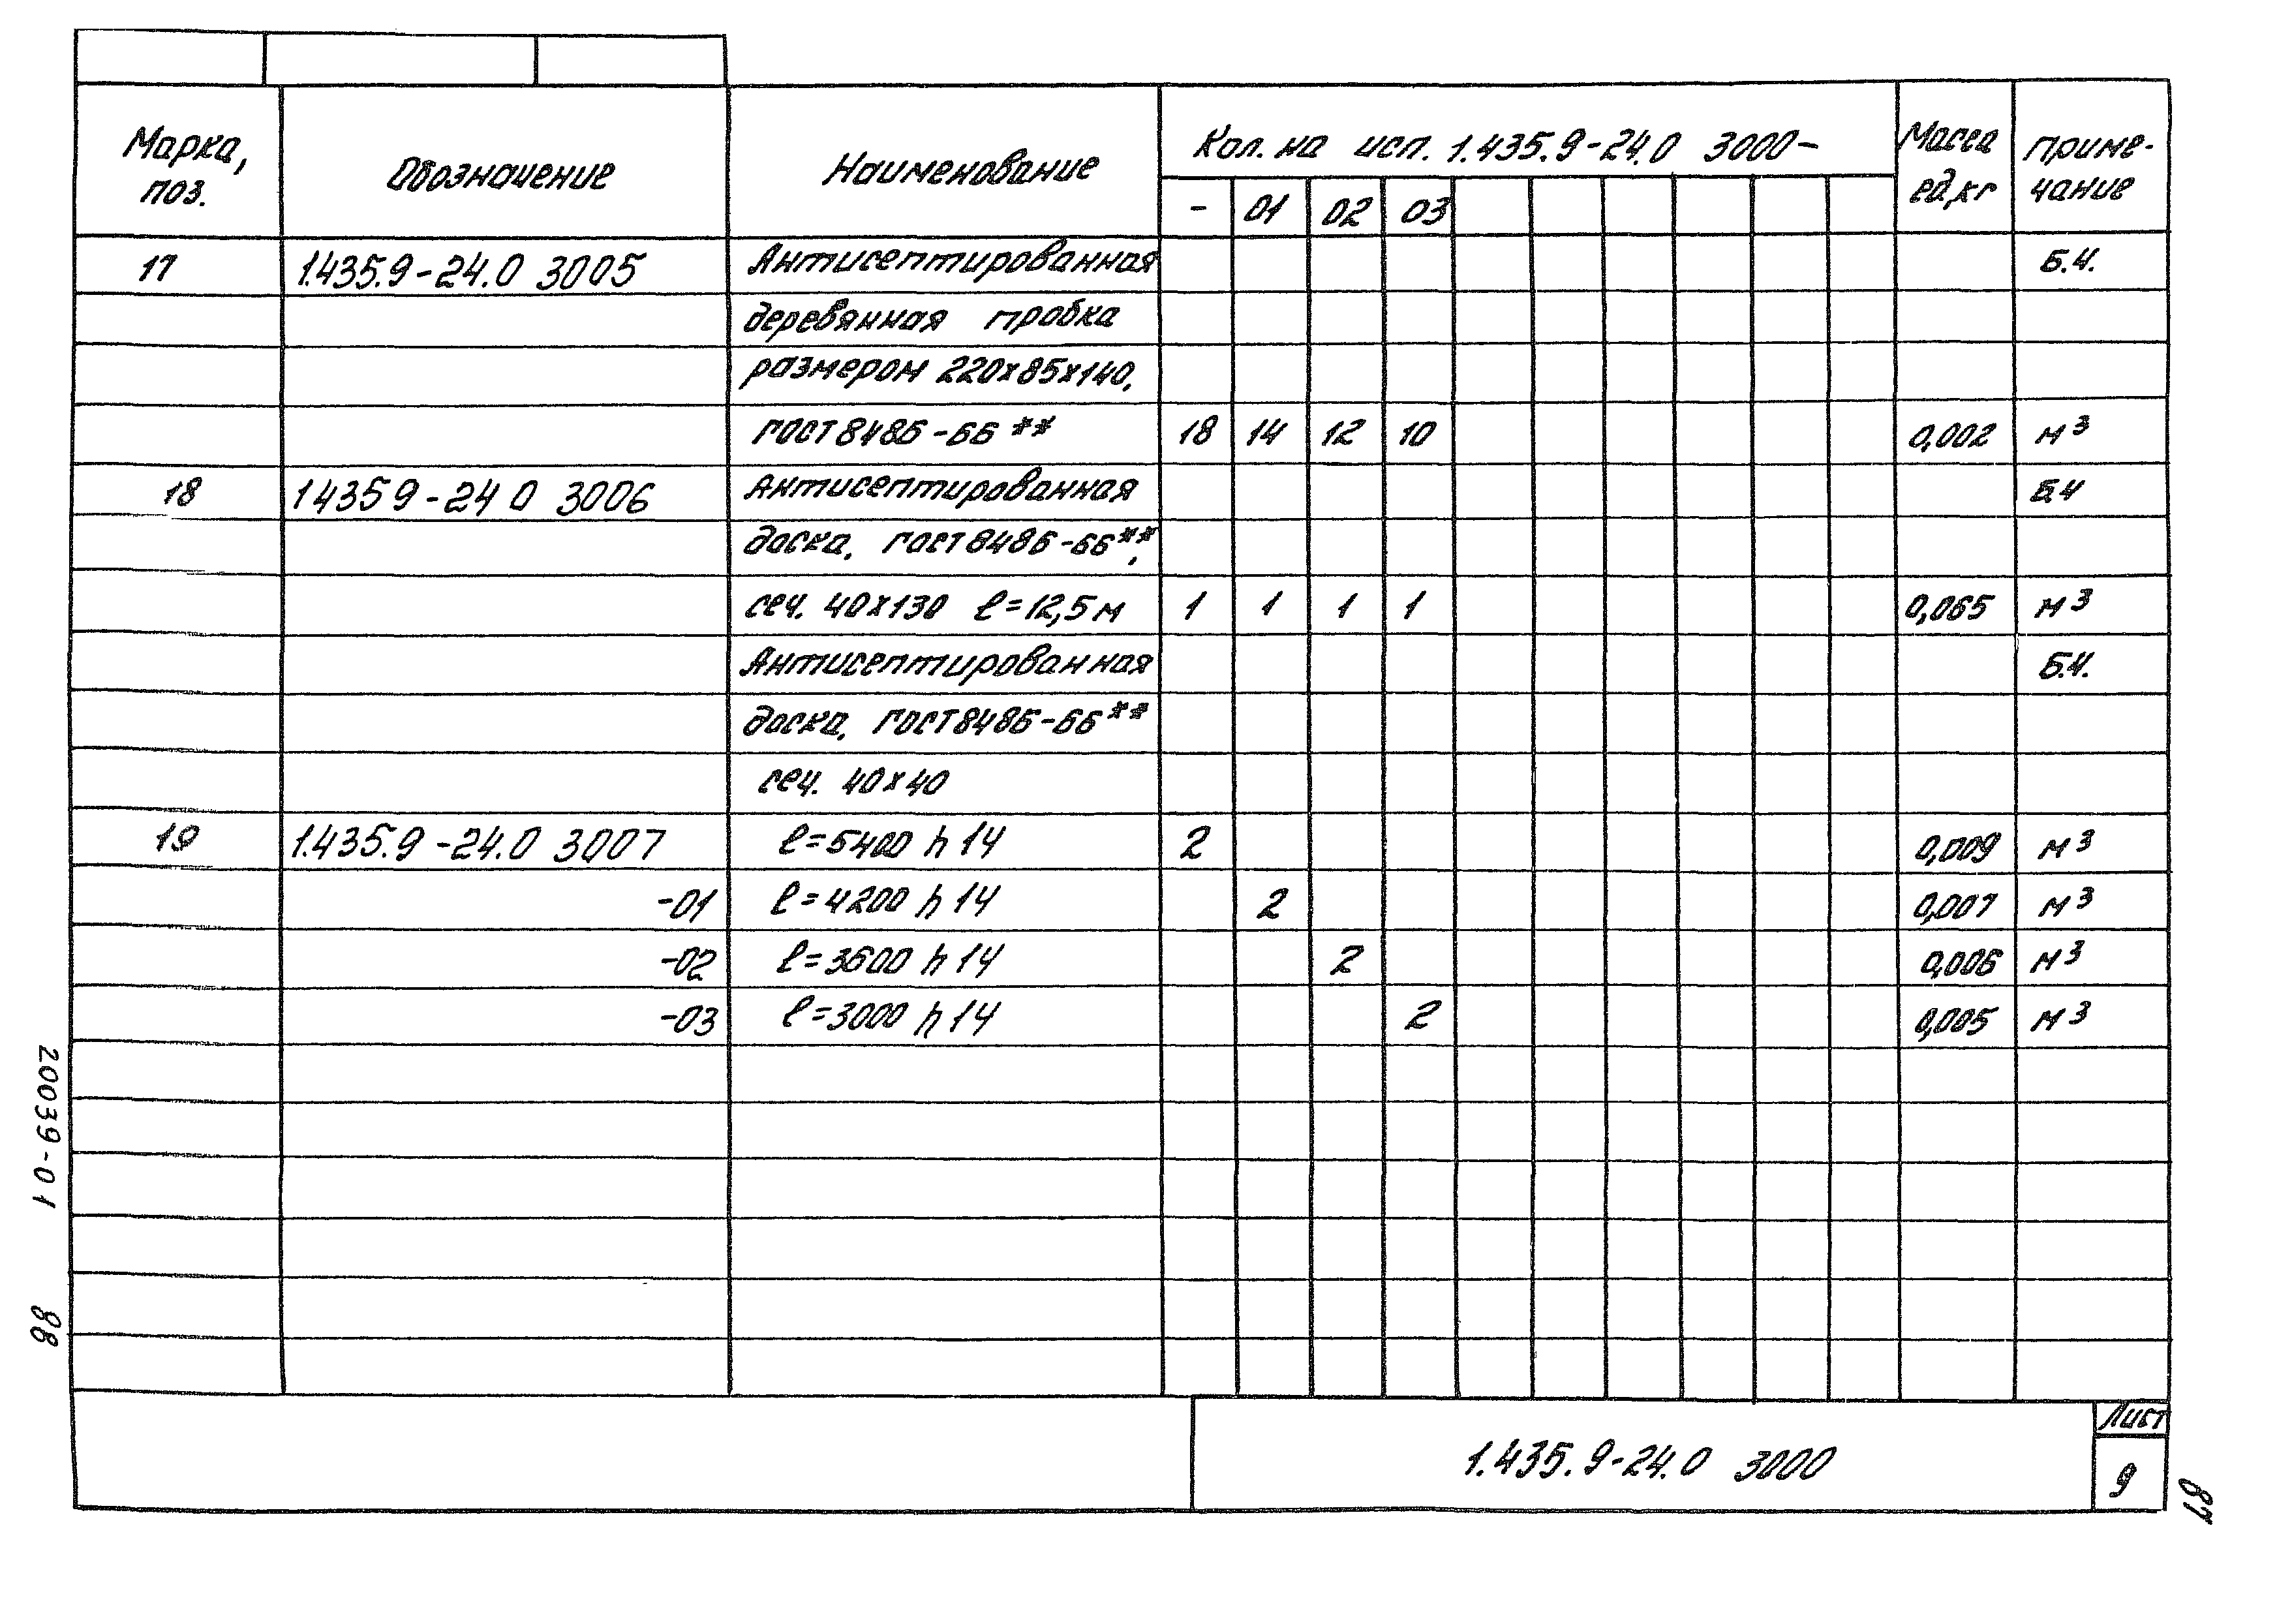 Марка, поз. Обозначение Наименование Кол. на исп. 1.435.9-24.0 3000- Масса ед,кг Приме-чание
- 01 02 03
17 1.435.9-24.0 3005 Антисептированная Б.Ч.
деревянная пробка
размером 220х85х140,
ГОСТ 8486-66** 18 14 12 10 0,002 м³
18 1 435 9-24 0 3006 Антисептированная Б.Ч
доска, ГОСТ 8486-66**,
сеч. 40х130 ℓ=12,5м 1 1 1 1 0,065 м³
Антисептированная Б.Ч.
доска, ГОСТ 8486-66**
сеч. 40х40
19 1.435.9-24.0 3007 ℓ=5400 h14 2 0,009 м³
-01 ℓ=4200 h14 2 0,007 м³
-02 ℓ=3600 h14 2 0,006 м³
-03 ℓ=3000 h14 2 0,005 м³
20039-01 88
1.435.9-24.0 3000
Лист
9
87